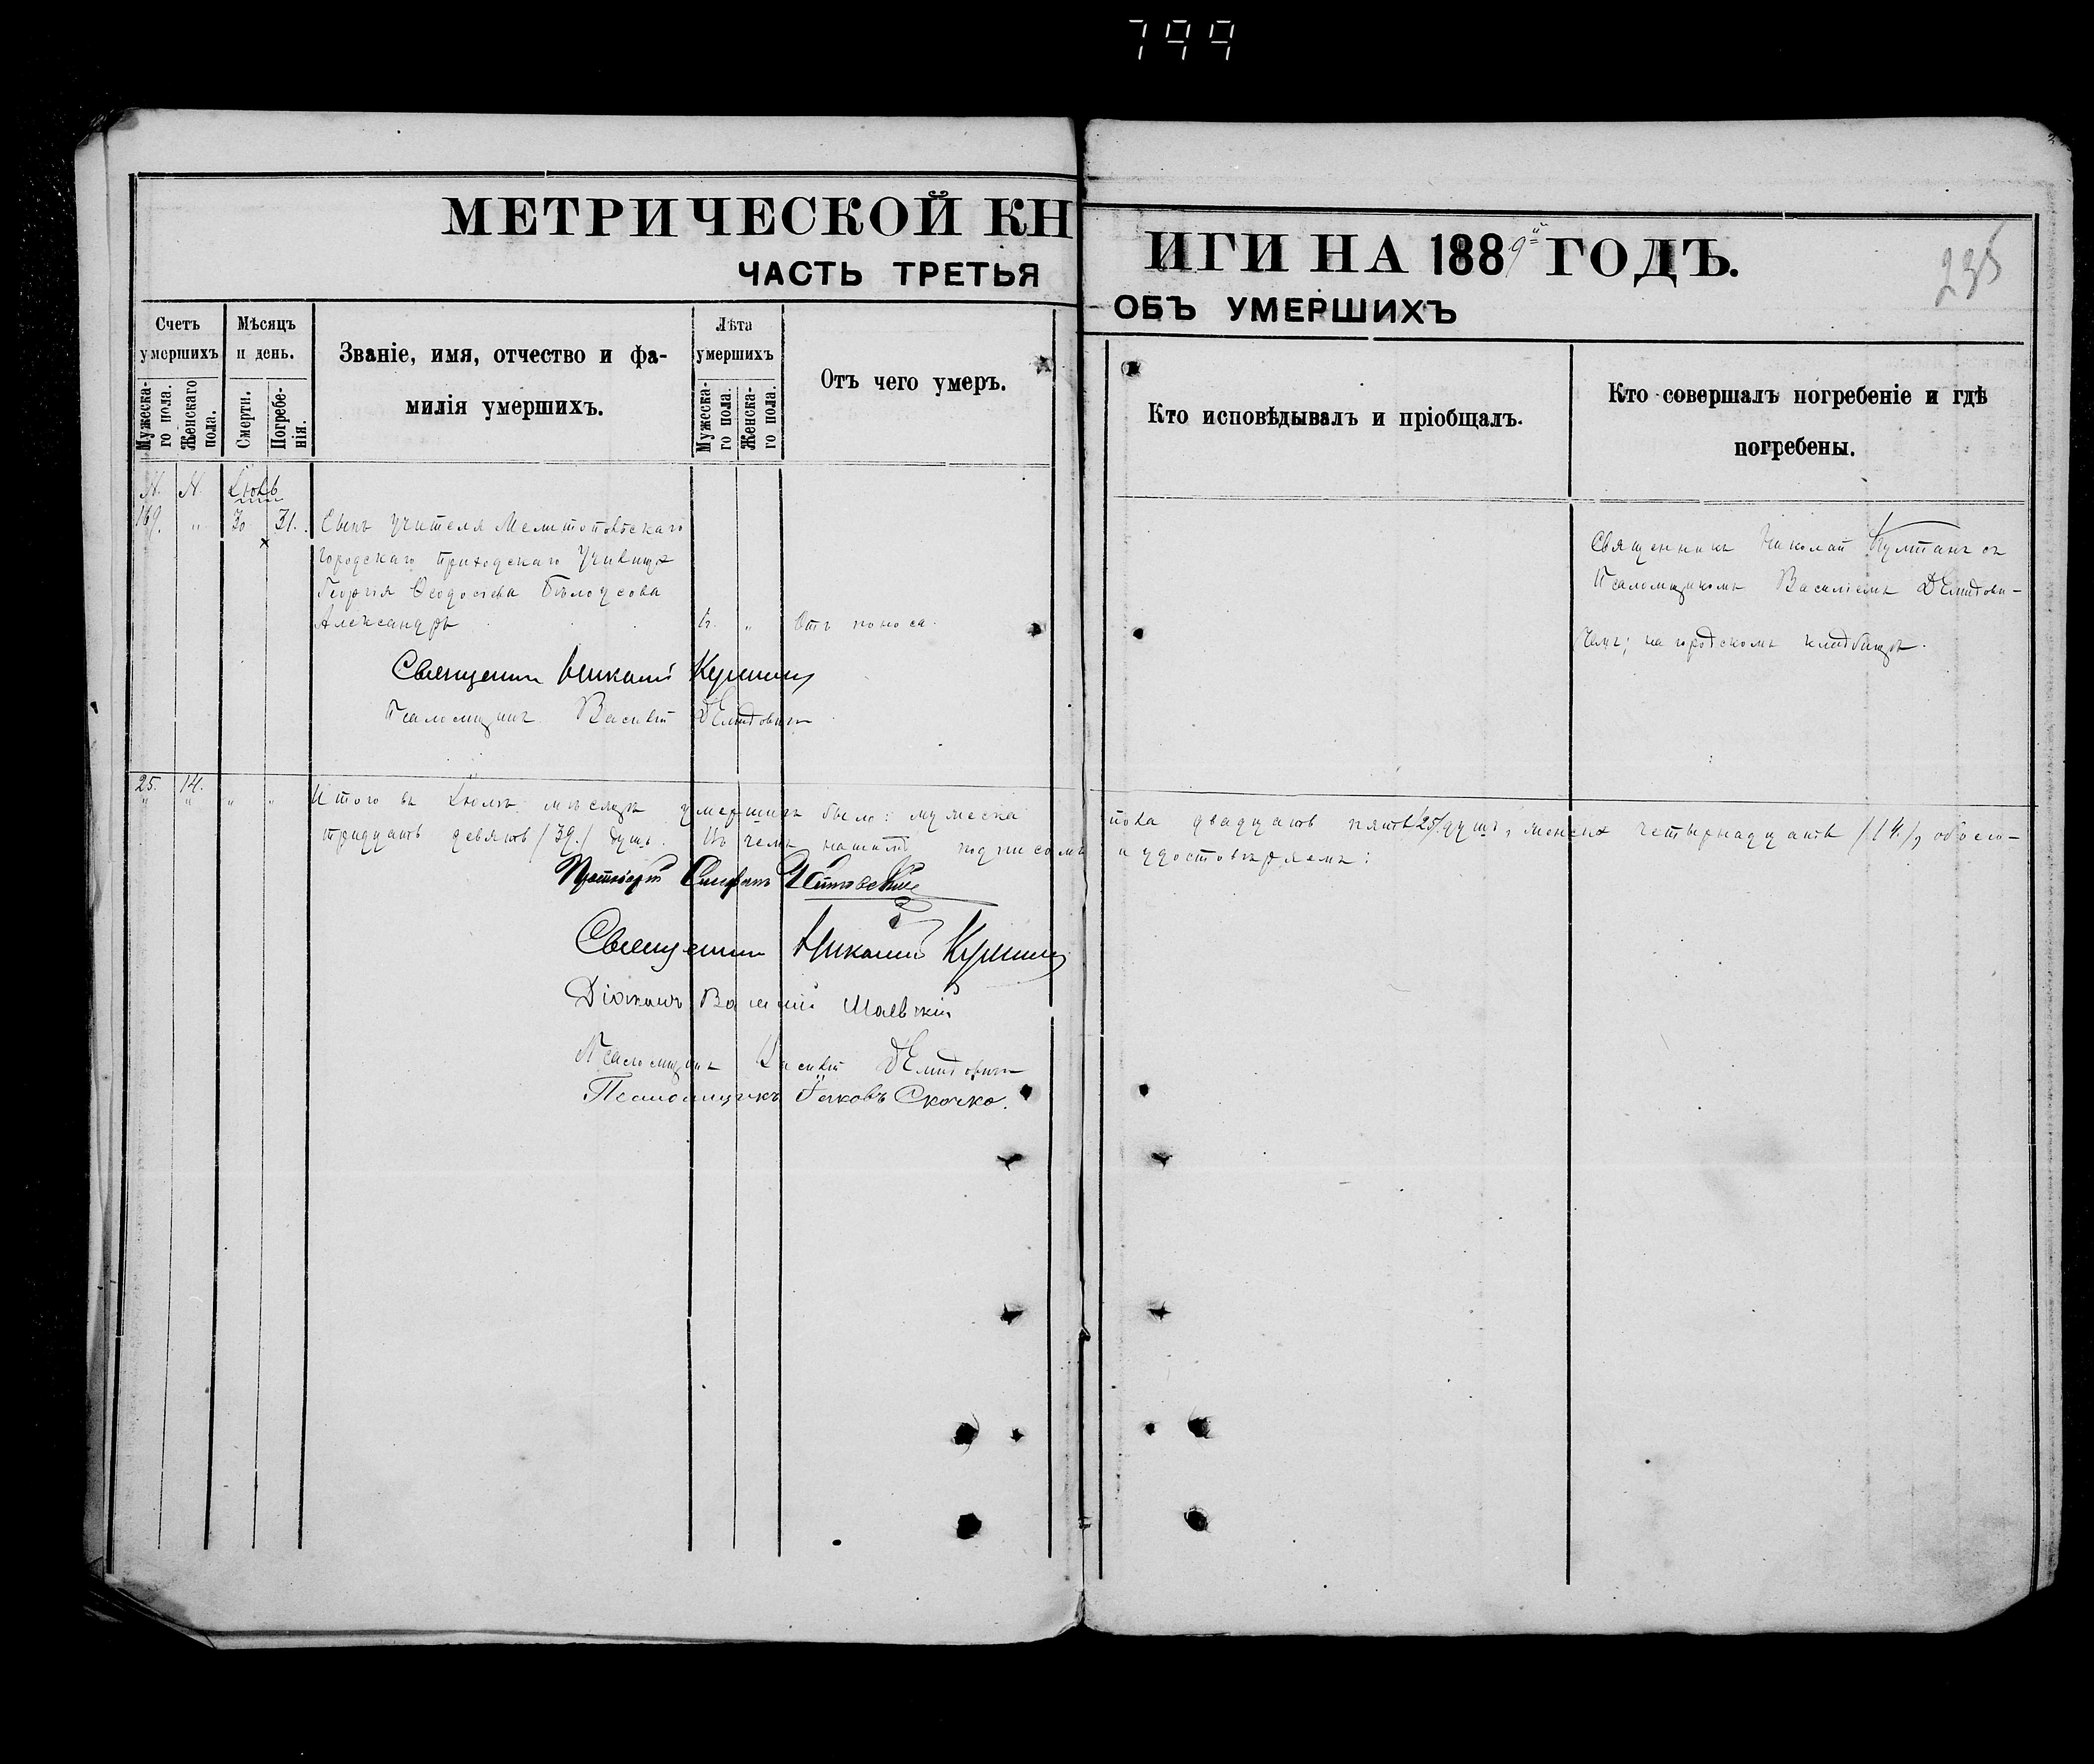 799
МЕТРИЧЕСКОЙ КНИГИ НА 1889й ГОДЪ.
235
ЧАСТЬ ТРЕТЬЯ ОБЪ УМЕРШИХЪ
Счетъ умершихъ
Мужескаго пола.
Женскаго пола.
Мѣсяцъ и день.
Смерти.
Погребенія.
Званіе, имя, отчество и фамилія умершихъ.
Лѣта умершихъ
Мужескаго пола.
Женскаго пола.
Отъ чего умеръ.
Кто исповѣдывалъ и пріобщалъ.
Кто совершалъ погребеніе и гдѣ погребены.
N. N. Іюль
169. " 30 31. Сынъ учителя Мелитопольскаго
городскаго приходскаго училища
Георгія Ѳеодосіева Бѣлоусова
Александръ " Отъ поноса.
Священникъ Николай съ
Псаломщикомъ Василіемъ Демидови-
чемъ; на городскомъ кладбищѣ.
Священникъ Николай
Псаломщикъ Василій Демидовичъ
25. 14. " " Итого въ Іюлѣ мѣсяцѣ умершихъ было: мужеска пола двадцать пять /25/ душъ, женска четырнадцать /14/, обоего-
тридцать девять /39./ душъ. Въ чемъ нашимъ подписомъ и удостовѣряемъ:
Протоіерей Стефанъ
Священникъ Николай
Діаконъ Василій
Псаломщикъ Василій Демидовичъ
Псаломщикъ Іаковъ Скочко.